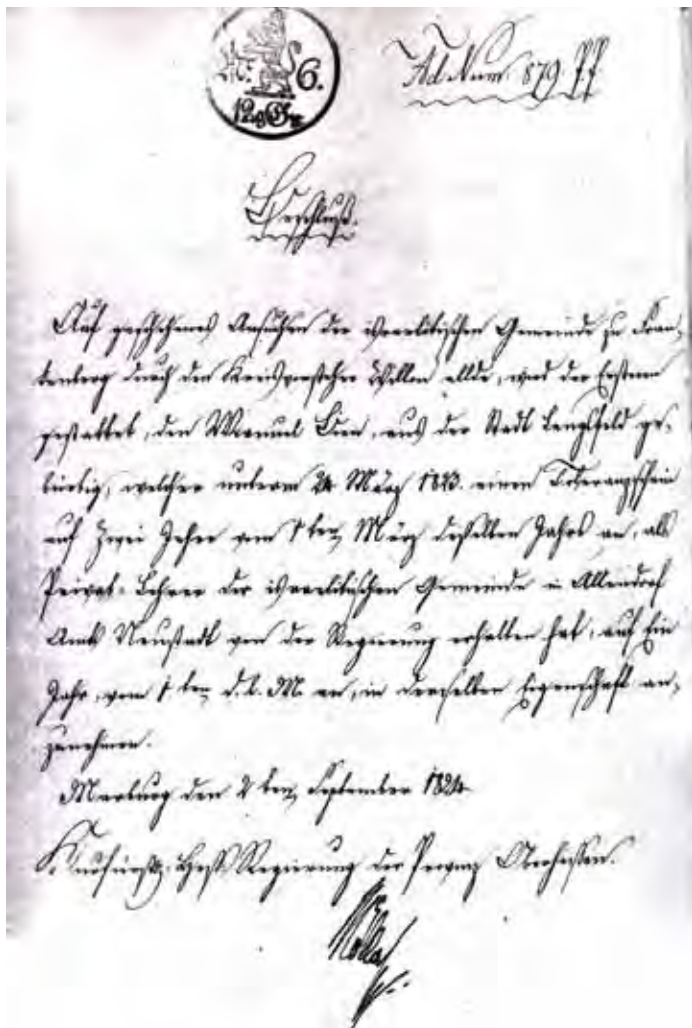 N: 6.
12 gGr
Ad Num. 879. P.P.
Beschluß.
Auf geschehenes Ansuchen der israelitischen Gemeinde zu Fran-
kenberg durch den Kreisvorsteher, wird der Ersteren
gestattet, den Manuel Lion, aus der Stadt Lengsfeld ge-
bürtig, welcher unterm 24 März 1823. einen Toleranzschein
auf Zwei Jahre vom 1ten März desselben Jahrs an, als
Privat-Lehrer der israelitischen Gemeinde in Allendorf
Amts Neustadt von der Regierung erhalten hat, auf Ein
Jahr, vom 1ten d. M. an, in derselben Eigenschaft an-
zunehmen.
Marburg den 2ten September 1824
Kurfürstl. Hess. Regierung der Provinz Oberhessen.